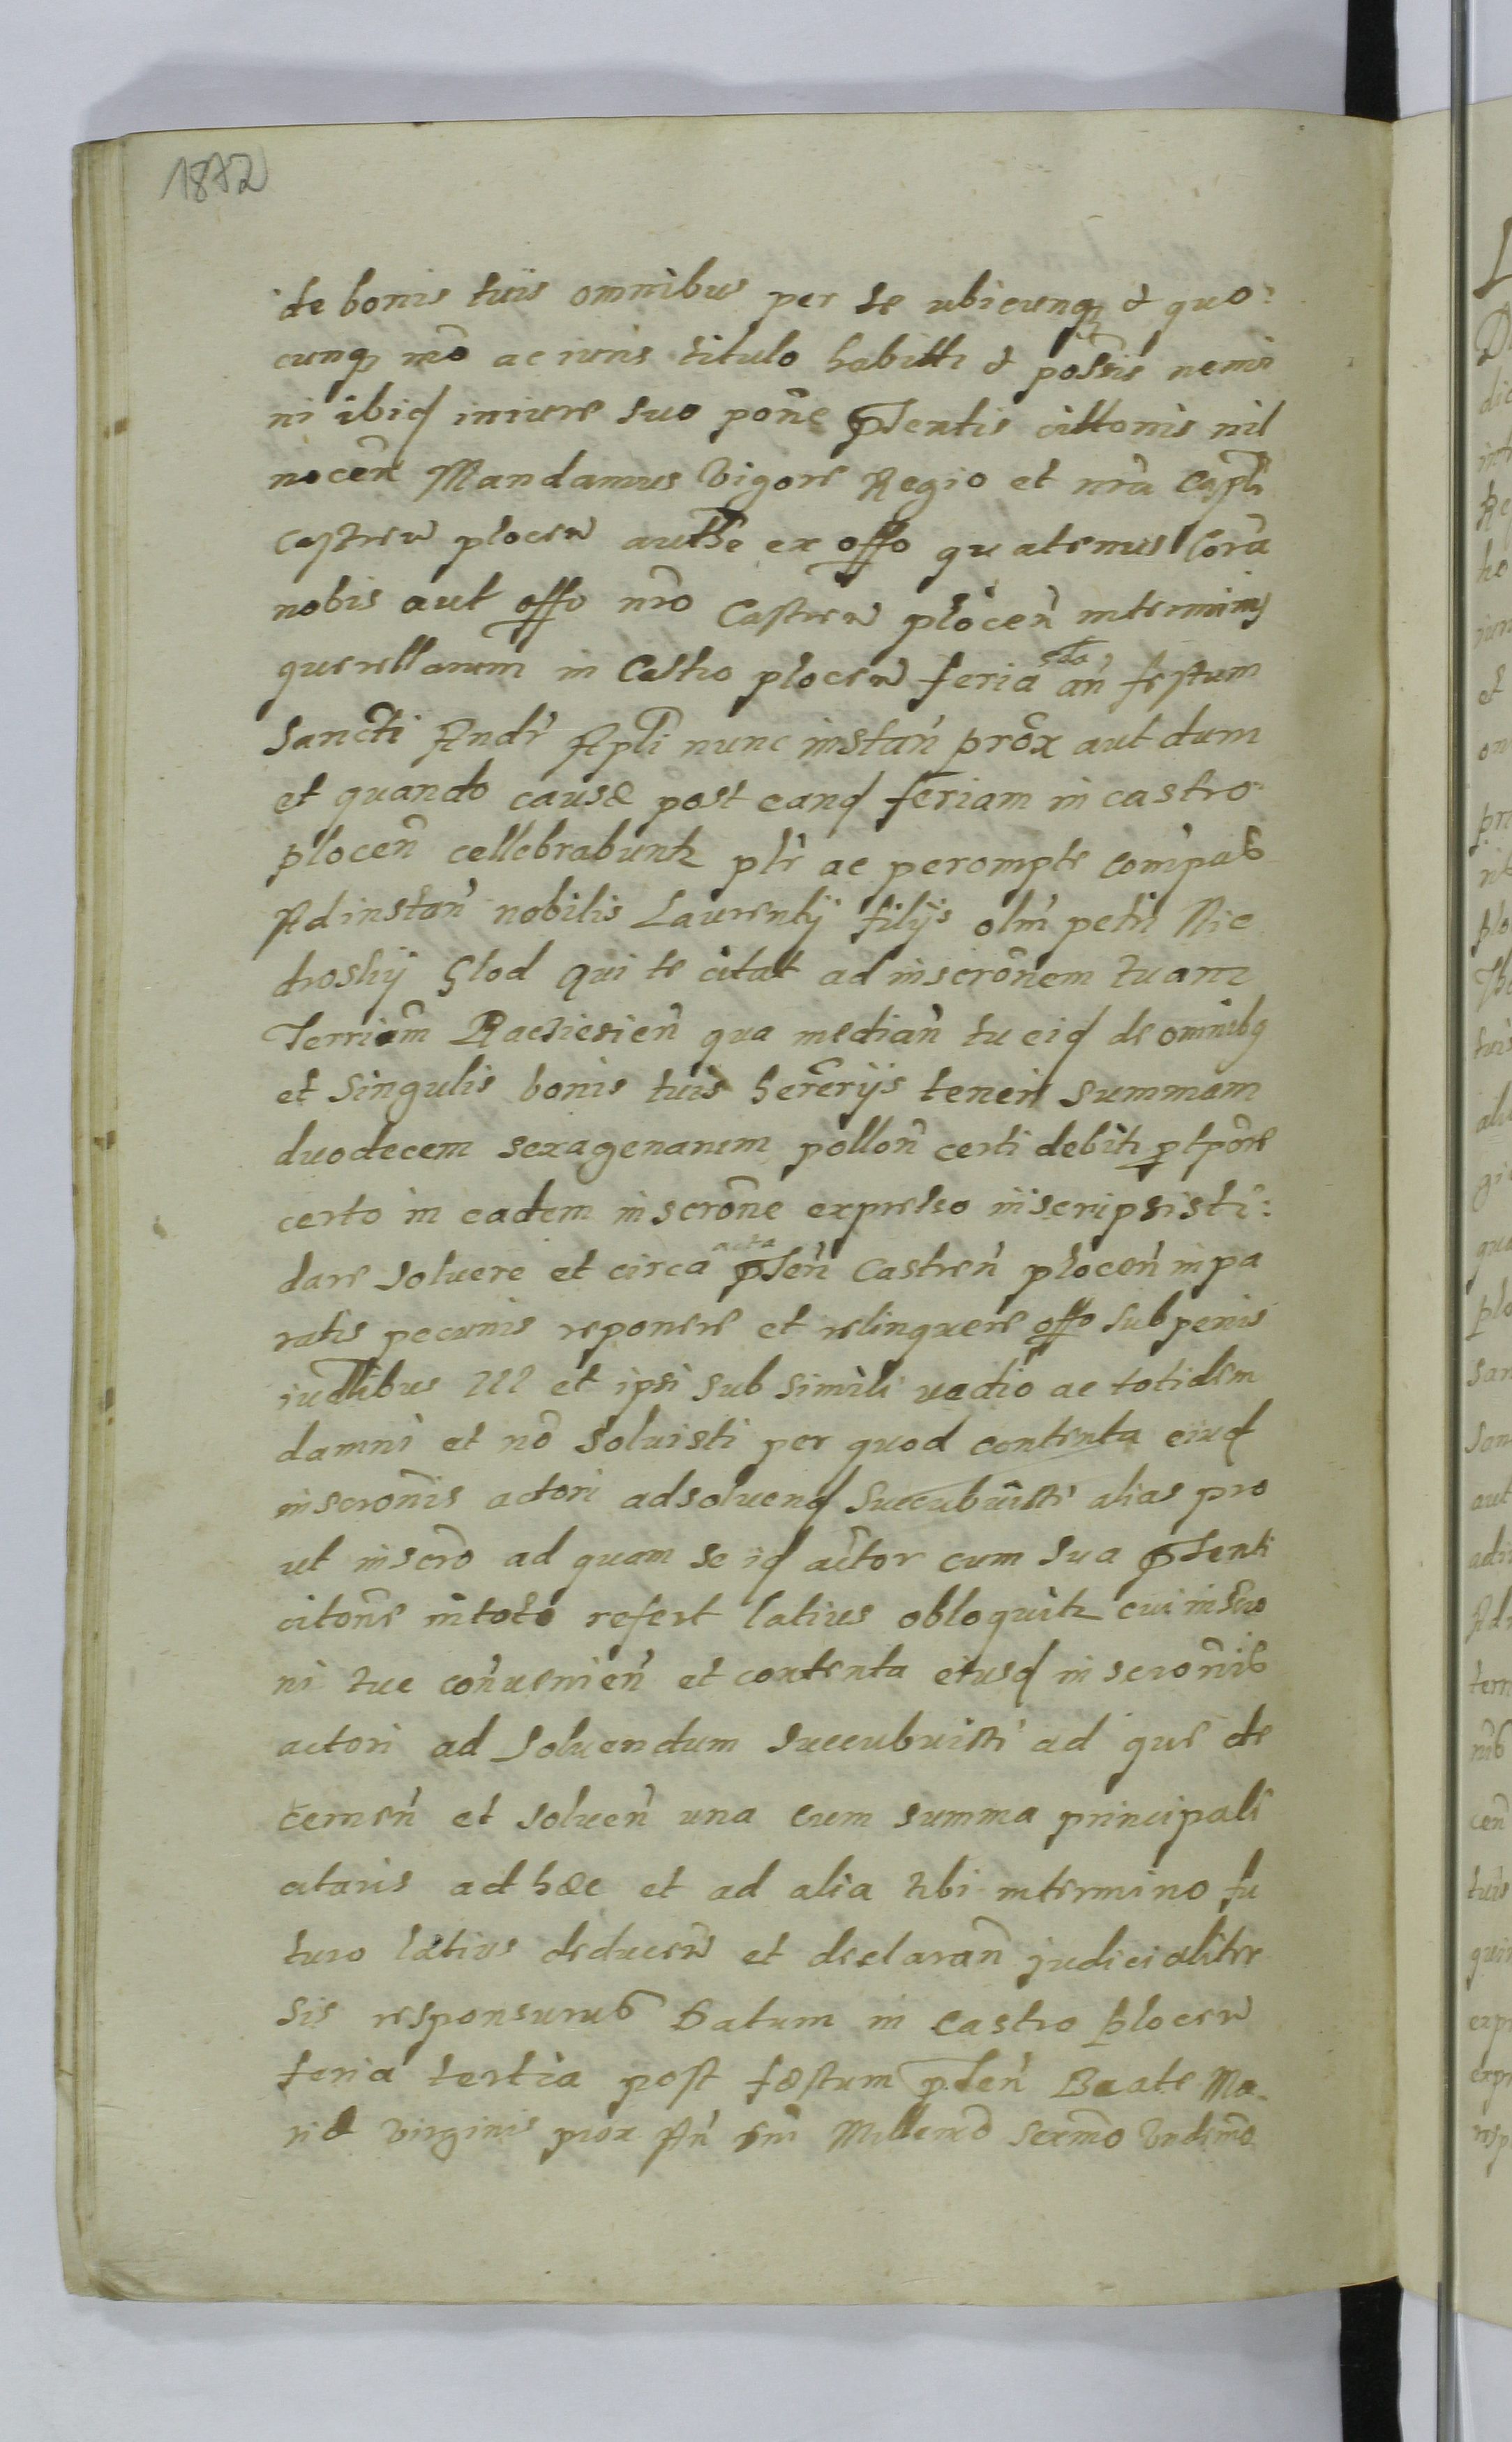 1872
de bonis tuis omnibus per te ubicunq; & quo:
cunq; mo ac iuris titulo habitis & possis nemi
ni ibiq iniure suo pone pntentis cittonis nil
nocen Mandamus Vigore Regio et nra Capli
castren plocen authe ex offo quatenus Cora
nobis aut offo nro Castren plocen interminis
querellarum in Castro plocen feria sda an festum
Sancti Andr Apli nunc instan prox aut dum
et quando causæ post eand feriam in castro
plocen cellebrabuntr ptr ac perempte compas
Ad instan nobilis Laurentij filijs olm petri Nie
droskij Glod qui te citat ad inscronem tuam
Terriam Raciesien qua median tu eid de omnibq
et Singulis bonis tuis herrijs teneri summam
duodecem sexagenarum pollon certi debiti p tpore
certo in eadem inscrone expresso inscripsisti:
dare soluere et circa acta pnten Castren plocen in pa
ratis pecunis reponere et relinquere offo sub penis
iudlibus et ipsi sub simili vadio ac totidem
damni et no soluisti per quod contenta eiusd
inscronis actori adsoluend succubuisti alias pro
ut inscro ad quam se id actor cum sua pntenti
citone intoto refert latius obloquitr cui inscro
ni tue conuenien et contenta eiusd inscronis
actori ad Soluendum Succubuisti ad que de
cernen et soluen una cum summa principali
citaris ad hæc et ad alia tibi intermino fu
turo latius deducen et declaran judicialiter
sis responsurus Datum in Castro plocen
feria tertia post fæstum pnten Beate Ma-
riæ virginis prox An Dni Millemo sexmo Undemo